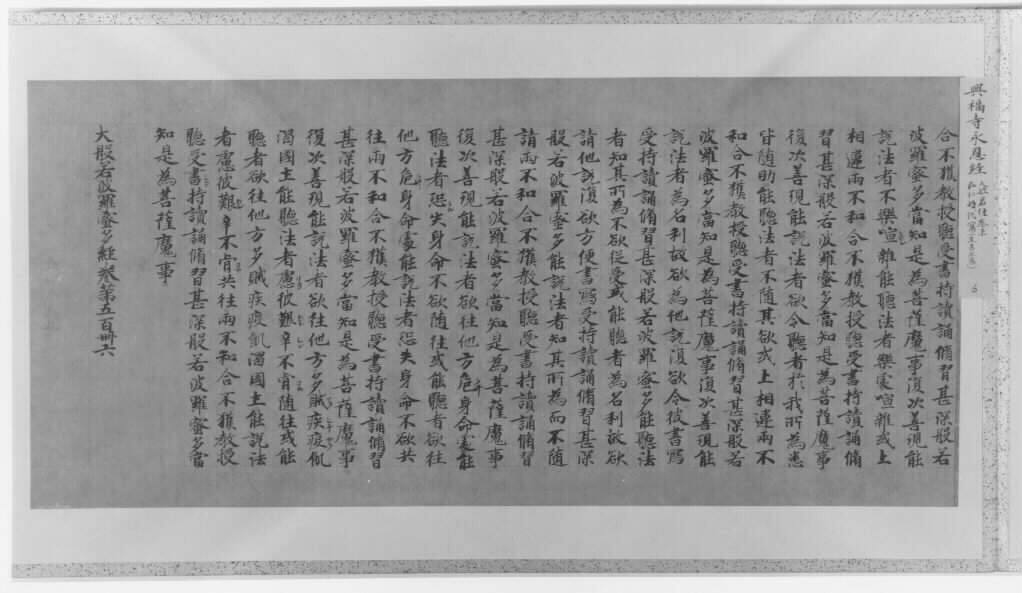 興福寺永恩経
合不獲教授聽受書持讀誦脩習甚深般若
波羅蜜多當知是為菩薩魔事復次善現能
說法者不樂喧雜能聽法者樂處喧雜或上
相違兩不和合不獲教授聽受書持讀誦脩
習甚深般若波羅蜜多當知是為菩薩魔事
復次善現能說法者欲令聽者於我所為悉
皆随助能聽法者不随其欲或上相違兩不
和合不獲教授聽受書持讀誦脩習甚深般若
波羅蜜多當知是為菩薩魔事復次善現能
說法者為名利故欲為他說復欲令彼書寫
受持讀誦脩習甚深般若波羅蜜多能聽法
者知其所為不欲從受或能聽者為名利故欲
請他說復欲方便書寫受持讀誦脩習甚深
般若波羅蜜多能說法者知其所為而不随
請兩不和合不獲教授聽受書持讀誦脩習
甚深般若波羅蜜多當知是為菩薩魔事
復次善現能說法者欲往他方危身命處能
聽法者恐失身命不欲随往或能聽者欲往
他方危身命處能說法者恐失身命不欲共
往兩不和合不獲教授聽受書持讀誦脩習
甚深般若波羅蜜多當知是為菩薩魔事
復次善現能說法者欲往他方多賊疾疫飢
渴國土能聽法者慮彼艱辛不肯随往或能
聽者欲往他方多賊疾疫飢渴國土能說法
者慮彼艱辛不肯共往兩不和合不獲教授
聽受書持讀誦脩習甚深般若波羅蜜多當
知是為菩薩魔事
大般若波羅蜜多經卷第五百卌六